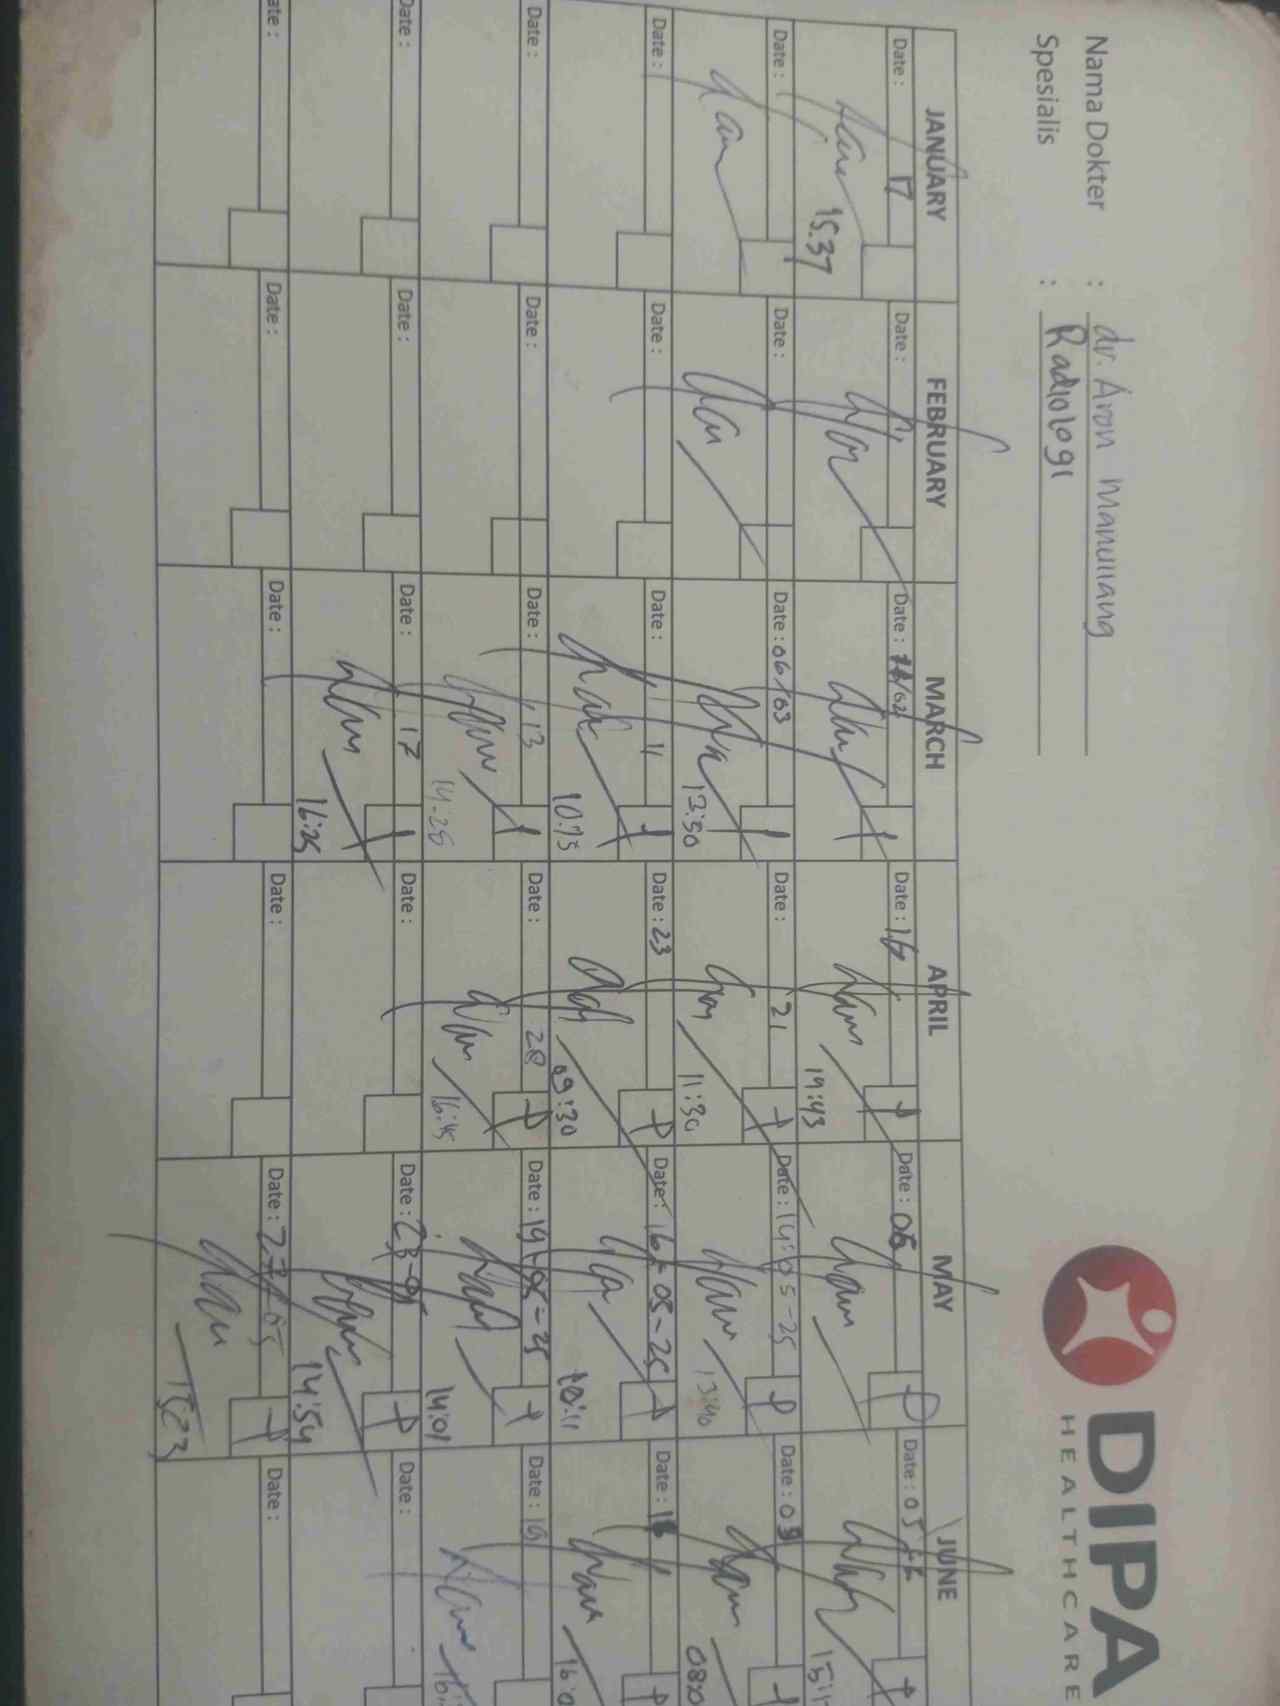 DIPA
HEALTHCARE
Nama Dokter : dr. Aron Manullang
Spesialis : Radiologi
JANUARY FEBRUARY MARCH APRIL MAY JUNE
Date: 17 Date: Date: Date: 16 Date: 06 Date: 05
15.37 14:43
Date: Date: Date: 06/03 Date: 21 Date: 14-05-25 Date: 09
13:30 11:30 13:40
Date: Date: Date: 11 Date: 23 Date: 16-05-25 Date: 18
09:30
Date: Date: Date: 13 Date: 28 Date: 19-05-25 Date: 19
14:28 16:45 14:01
Date: Date: Date: 17 Date: Date: 23- Date:
16:25 14:54
Date: Date: Date: Date: Date: 27-05 Date: